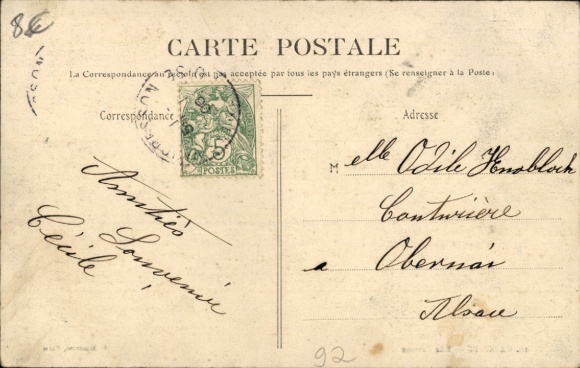 86
CARTE POSTALE
La Correspondance au recto n'est pas acceptée par tous les pays étrangers (Se renseigner à la Poste)
Correspondance
Adresse
5
POSTES
Amitiés
Souvenir
Cécile
Melle Odile Knobloch
Couturière
a Obernai
Alsace
92